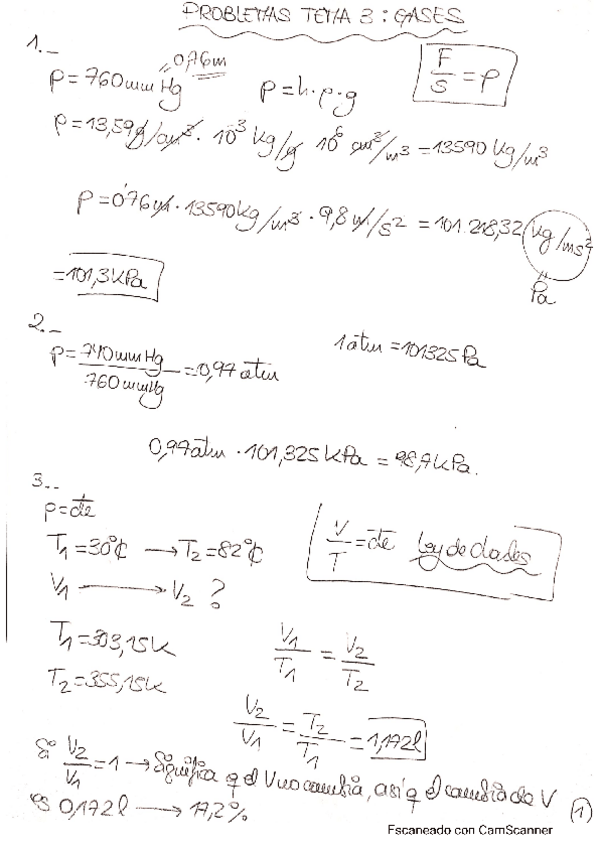 PROBLEMAS TEMA 3: GASES
1._
p = 760 mm Hg = 0,76 m p = h·ρ·g F/S = P
ρ = 13,59 g/cm³ · 10⁻³ kg/g 10⁶ cm³/m³ = 13590 kg/m³
p = 0'76 m · 13590 kg/m³ · 9,8 m/s² = 101.218,32 kg/ms²
= 101,3 kPa
Pa
2._
p = 740 mm Hg / 760 mm Hg = 0,97 atm 1 atm = 101325 Pa
0,97 atm · 101,325 kPa = 98,7 kPa.
3._
p = cte
T₁ = 30ºC → T₂ = 82ºC V/T = cte Ley de
V₁ → V₂ ?
T₁ = 303,15 K V₁/T₁ = V₂/T₂
T₂ = 355,15 K
V₂/V₁ = T₂/T₁ = 1,172 l
Si V₂/V₁ = 1 → Significa q el V no cambia, así q el cambio de V
es 0,172 l → 17,2%
1
Escaneado con CamScanner